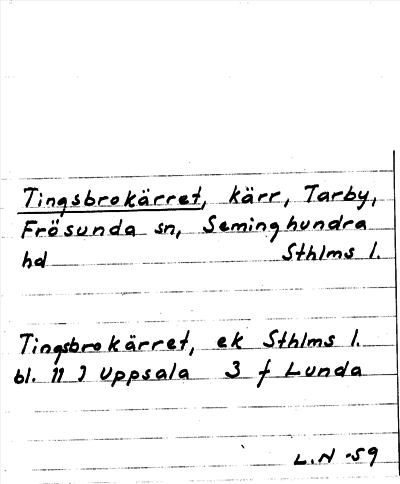 Tingsbrokärret, kärr, Tarby,
Frösunda sn, Seminghundra
hd Sthlms l.
Tingsbrokärret, ek Sthlms l.
bl. 11 J Uppsala 3 f Lunda
L.N -59